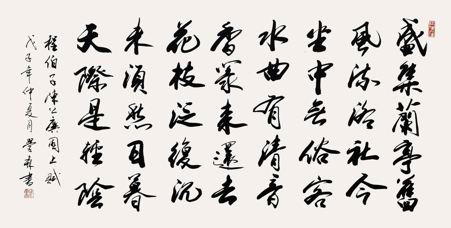 盛集蘭亭舊
風流洛社今
坐中無俗客
水曲有清音
香篆来還去
花枝泛復沉
未須愁日暮
天際是輕陰
程伯子陳公廙園上賦
戊子年仲夏月書